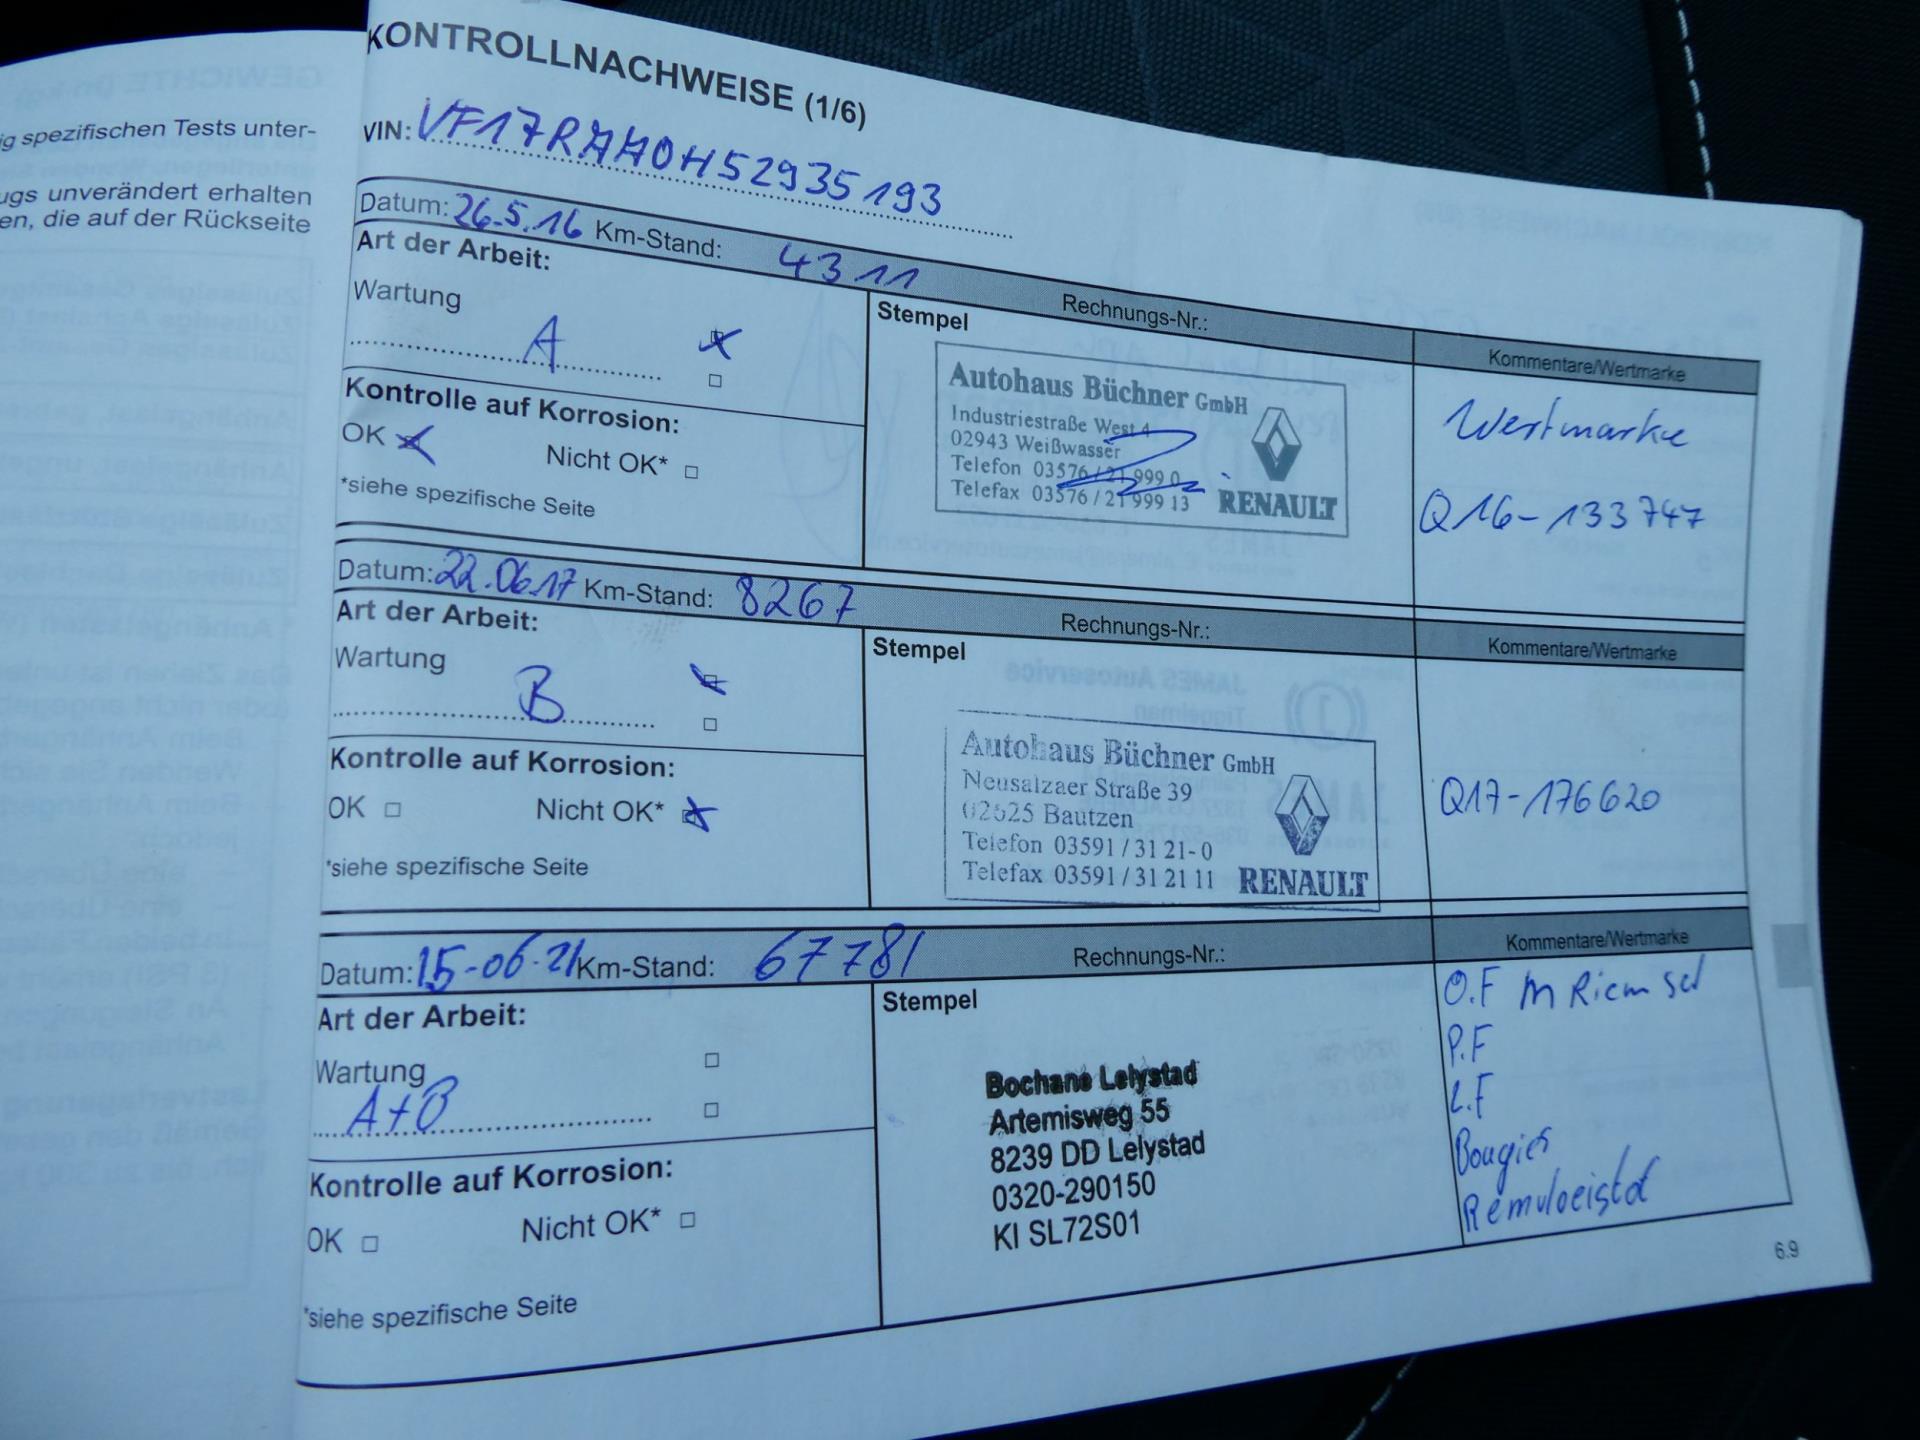 ig spezifischen Tests unter-
ugs unverändert erhalten
en, die auf der Rückseite
KONTROLLNACHWEISE (1/6)
VIN: VF17RAA0H52935193
Datum: 26.5.16 Km-Stand: 4311
Rechnungs-Nr.:
Kommentare/Wertmarke
Art der Arbeit:
Wartung
A
Kontrolle auf Korrosion:
OK Nicht OK*
*siehe spezifische Seite
Stempel
Autohaus Büchner GmbH
Industriestraße West 4
02943 Weißwasser
Telefon 03576 / 21 999 0
Telefax 03576 / 21 999 13
RENAULT
Wertmarke
Q16-133747
Datum: 22.06.17 Km-Stand: 8267
Rechnungs-Nr.:
Kommentare/Wertmarke
Art der Arbeit:
Wartung
B
Kontrolle auf Korrosion:
OK Nicht OK*
*siehe spezifische Seite
Stempel
Autohaus Büchner GmbH
Neusalzaer Straße 39
02625 Bautzen
Telefon 03591 / 31 21-0
Telefax 03591 / 31 21 11
RENAULT
Q17-176620
Datum: 15-06-21 Km-Stand: 67781
Rechnungs-Nr.:
Kommentare/Wertmarke
Art der Arbeit:
Wartung
A+B
Kontrolle auf Korrosion:
OK Nicht OK*
*siehe spezifische Seite
Stempel
Bochane Lelystad
Artemisweg 55
8239 DD Lelystad
0320-290150
KI SL72S01
O.F M Riem set
P.F
L.F
Bougies
Remvloeistof
6.9